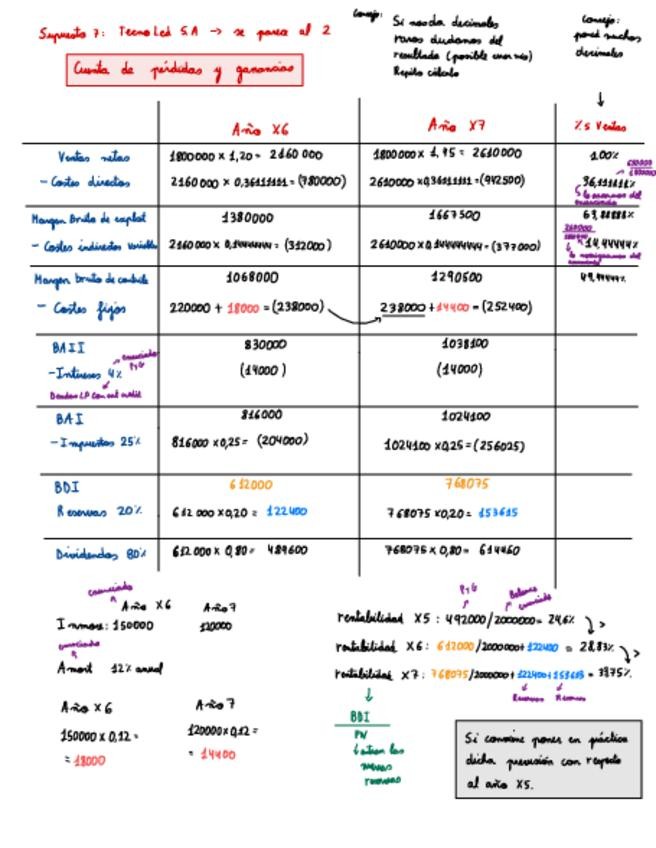 Supuesto 7: TecnoLed S.A → se parece al 2
Consejo: Si nos da decimales
raros dudamos del
resultado (posible erroneo)
Repito cálculo
Consejo:
poned muchos
decimales
Cuenta de pérdidas y ganancias
Año X6 Año X7 % S Ventas
Ventas netas 1800000 x 1,20 = 2160 000 1800000 x 1,45 = 2610000 100%
- Costes directos 2160 000 x 0,36111111 = (780000) 2610000 x 0,36111111 = (942500) 36,111111%
Margen Bruto de explot 1380000 1667500 63,88888%
- Costes indirectos variables 2160000 x 0,14444444 = (312000) 2610000 x 0,144444444 = (377000) 14,44444%
Margen bruto de contrib 1068000 1290500 49,44444%
- Costes fijos 220000 + 18000 = (238000) 238000 + 14400 = (252400)
BAII 830000 1038100
- Intereses 4% (14000) (14000)
enunciado
PyG
Deudas LP con ent crédit
BAI 816000 1024100
- Impuestos 25% 816000 x 0,25 = (204000) 1024100 x 0,25 = (256025)
BDI 612000 768075
Reservas 20% 612 000 x 0,20 = 122400 768075 x 0,20 = 153615
Dividendos 80% 612000 x 0,80 = 489600 768075 x 0,80 = 614460
enunciado
Año X6 Año 7
Inmov: 150000 120000
enunciado
Amort 12% anual
Año X6 Año 7
150000 x 0,12 = 120000 x 0,12 =
= 18000 = 14400
PyG Balance
enunciado
rentabilidad X5: 492000/2000000 = 24,6%
rentabilidad X6: 612000/2000000+122400 = 28,83%
rentabilidad X7: 768075/2000000+122400+153615 = 33,75%
Reservas Reservas
BDI
PN
entran las
nuevas
reservas
Si conviene poner en práctica
dicha previsión con respecto
al año X5.